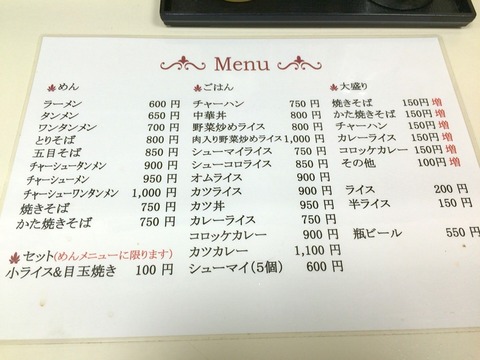 Menu
めん
ラーメン 600 円
タンメン 650 円
ワンタンメン 700 円
とりそば 800 円
五目そば 850 円
チャーシュータンメン 950 円
チャーシューメン 900 円
チャーシューワンタンメン 1,000 円
焼きそば 750 円
かた焼きそば 750 円
セット(めんメニューに限ります)
小ライス&目玉焼き 100 円
ごはん
チャーハン 750 円
中華丼 800 円
野菜炒めライス 800 円
肉入り野菜炒めライス1,000 円
シューマイライス 850 円
シューコロライス 850 円
オムライス 900 円
カツライス 900 円
カツ丼 900 円
カレーライス 750 円
コロッケカレー 900 円
カツカレー 1,100 円
シューマイ(5個) 600 円
大盛り
焼きそば 150円 増
かた焼きそば 150円 増
チャーハン 150円 増
カレーライス 150円 増
コロッケカレー 150円 増
その他 100円 増
ライス 200 円
半ライス 150 円
瓶ビール 550 円